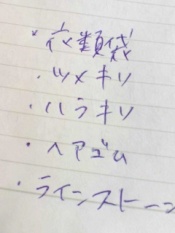 ・衣類袋
・ツメキリ
・ハラキリ
・ヘアゴム
・ラインストーン